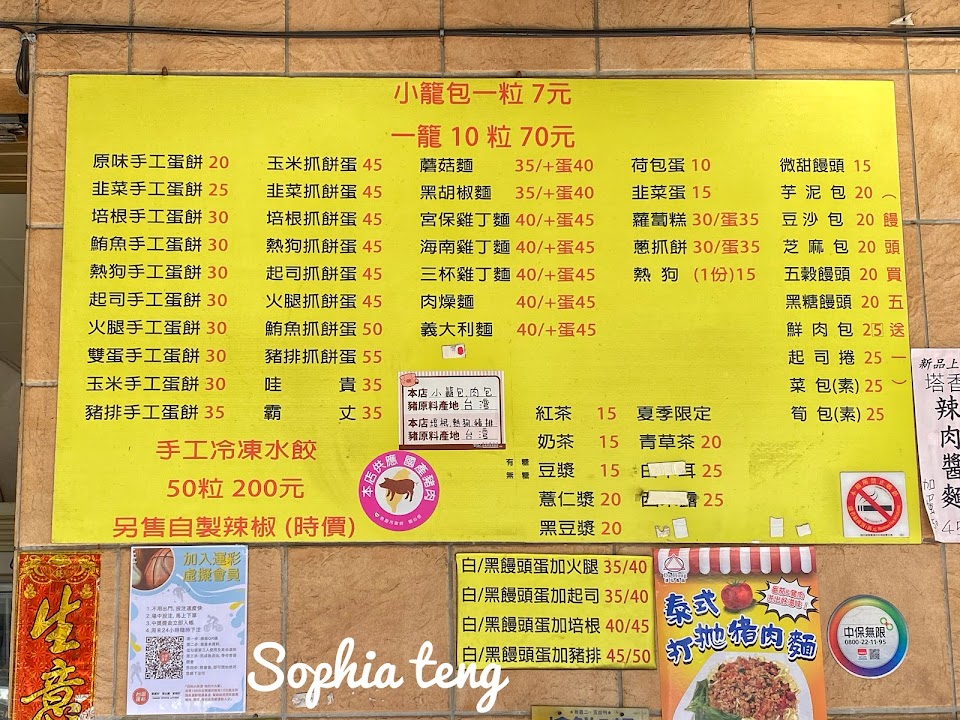 小籠包一粒 7元
一籠 10 粒 70元
原味手工蛋餅 20
韭菜手工蛋餅 25
培根手工蛋餅 30
鮪魚手工蛋餅 30
熱狗手工蛋餅 30
起司手工蛋餅 30
火腿手工蛋餅 30
雙蛋手工蛋餅 30
玉米手工蛋餅 30
豬排手工蛋餅 35
手工冷凍水餃
50粒 200元
另售自製辣椒 (時價)
玉米抓餅蛋 45
韭菜抓餅蛋 45
培根抓餅蛋 45
熱狗抓餅蛋 45
起司抓餅蛋 45
火腿抓餅蛋 45
鮪魚抓餅蛋 50
豬排抓餅蛋 55
哇 貴 35
霸 丈 35
蘑菇麵 35/+蛋40
黑胡椒麵 35/+蛋40
宮保雞丁麵 40/+蛋45
海南雞丁麵 40/+蛋45
三杯雞丁麵 40/+蛋45
肉燥麵 40/+蛋45
義大利麵 40/+蛋45
荷包蛋 10
韭菜蛋 15
蘿蔔糕 30/蛋35
蔥抓餅 30/蛋35
熱 狗 (1份)15
微甜饅頭 15
芋 泥 包 20
豆 沙 包 20
芝 麻 包 20
五穀饅頭 20
黑糖饅頭 20
鮮 肉 包 25
起 司 捲 25
菜 包(素) 25
筍 包(素) 25
（饅頭買五送一）
本店小籠包,肉包
豬原料產地 台灣
本店培根,熱狗,豬排
豬原料產地 台灣
本店供應 國產豬肉
紅茶 15
奶茶 15
有糖
無糖
豆漿 15
薏仁漿 20
黑豆漿 20
夏季限定
青草茶 20
25
25
新品上
塔香
辣肉醬麵
加入運彩
虛擬會員
生意
白/黑饅頭蛋加火腿 35/40
白/黑饅頭蛋加起司 35/40
白/黑饅頭蛋加培根 40/45
白/黑饅頭蛋加豬排 45/50
泰式
打拋豬肉麵
中保無限
0800-22-11-95
Sophia teng